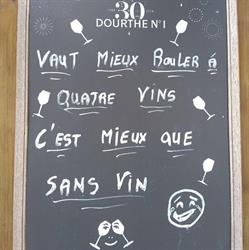 30
DOURTHE N°1
VAUT MIEUX ROULER À
QUATRE VINS
C'EST MIEUX QUE
SANS VIN